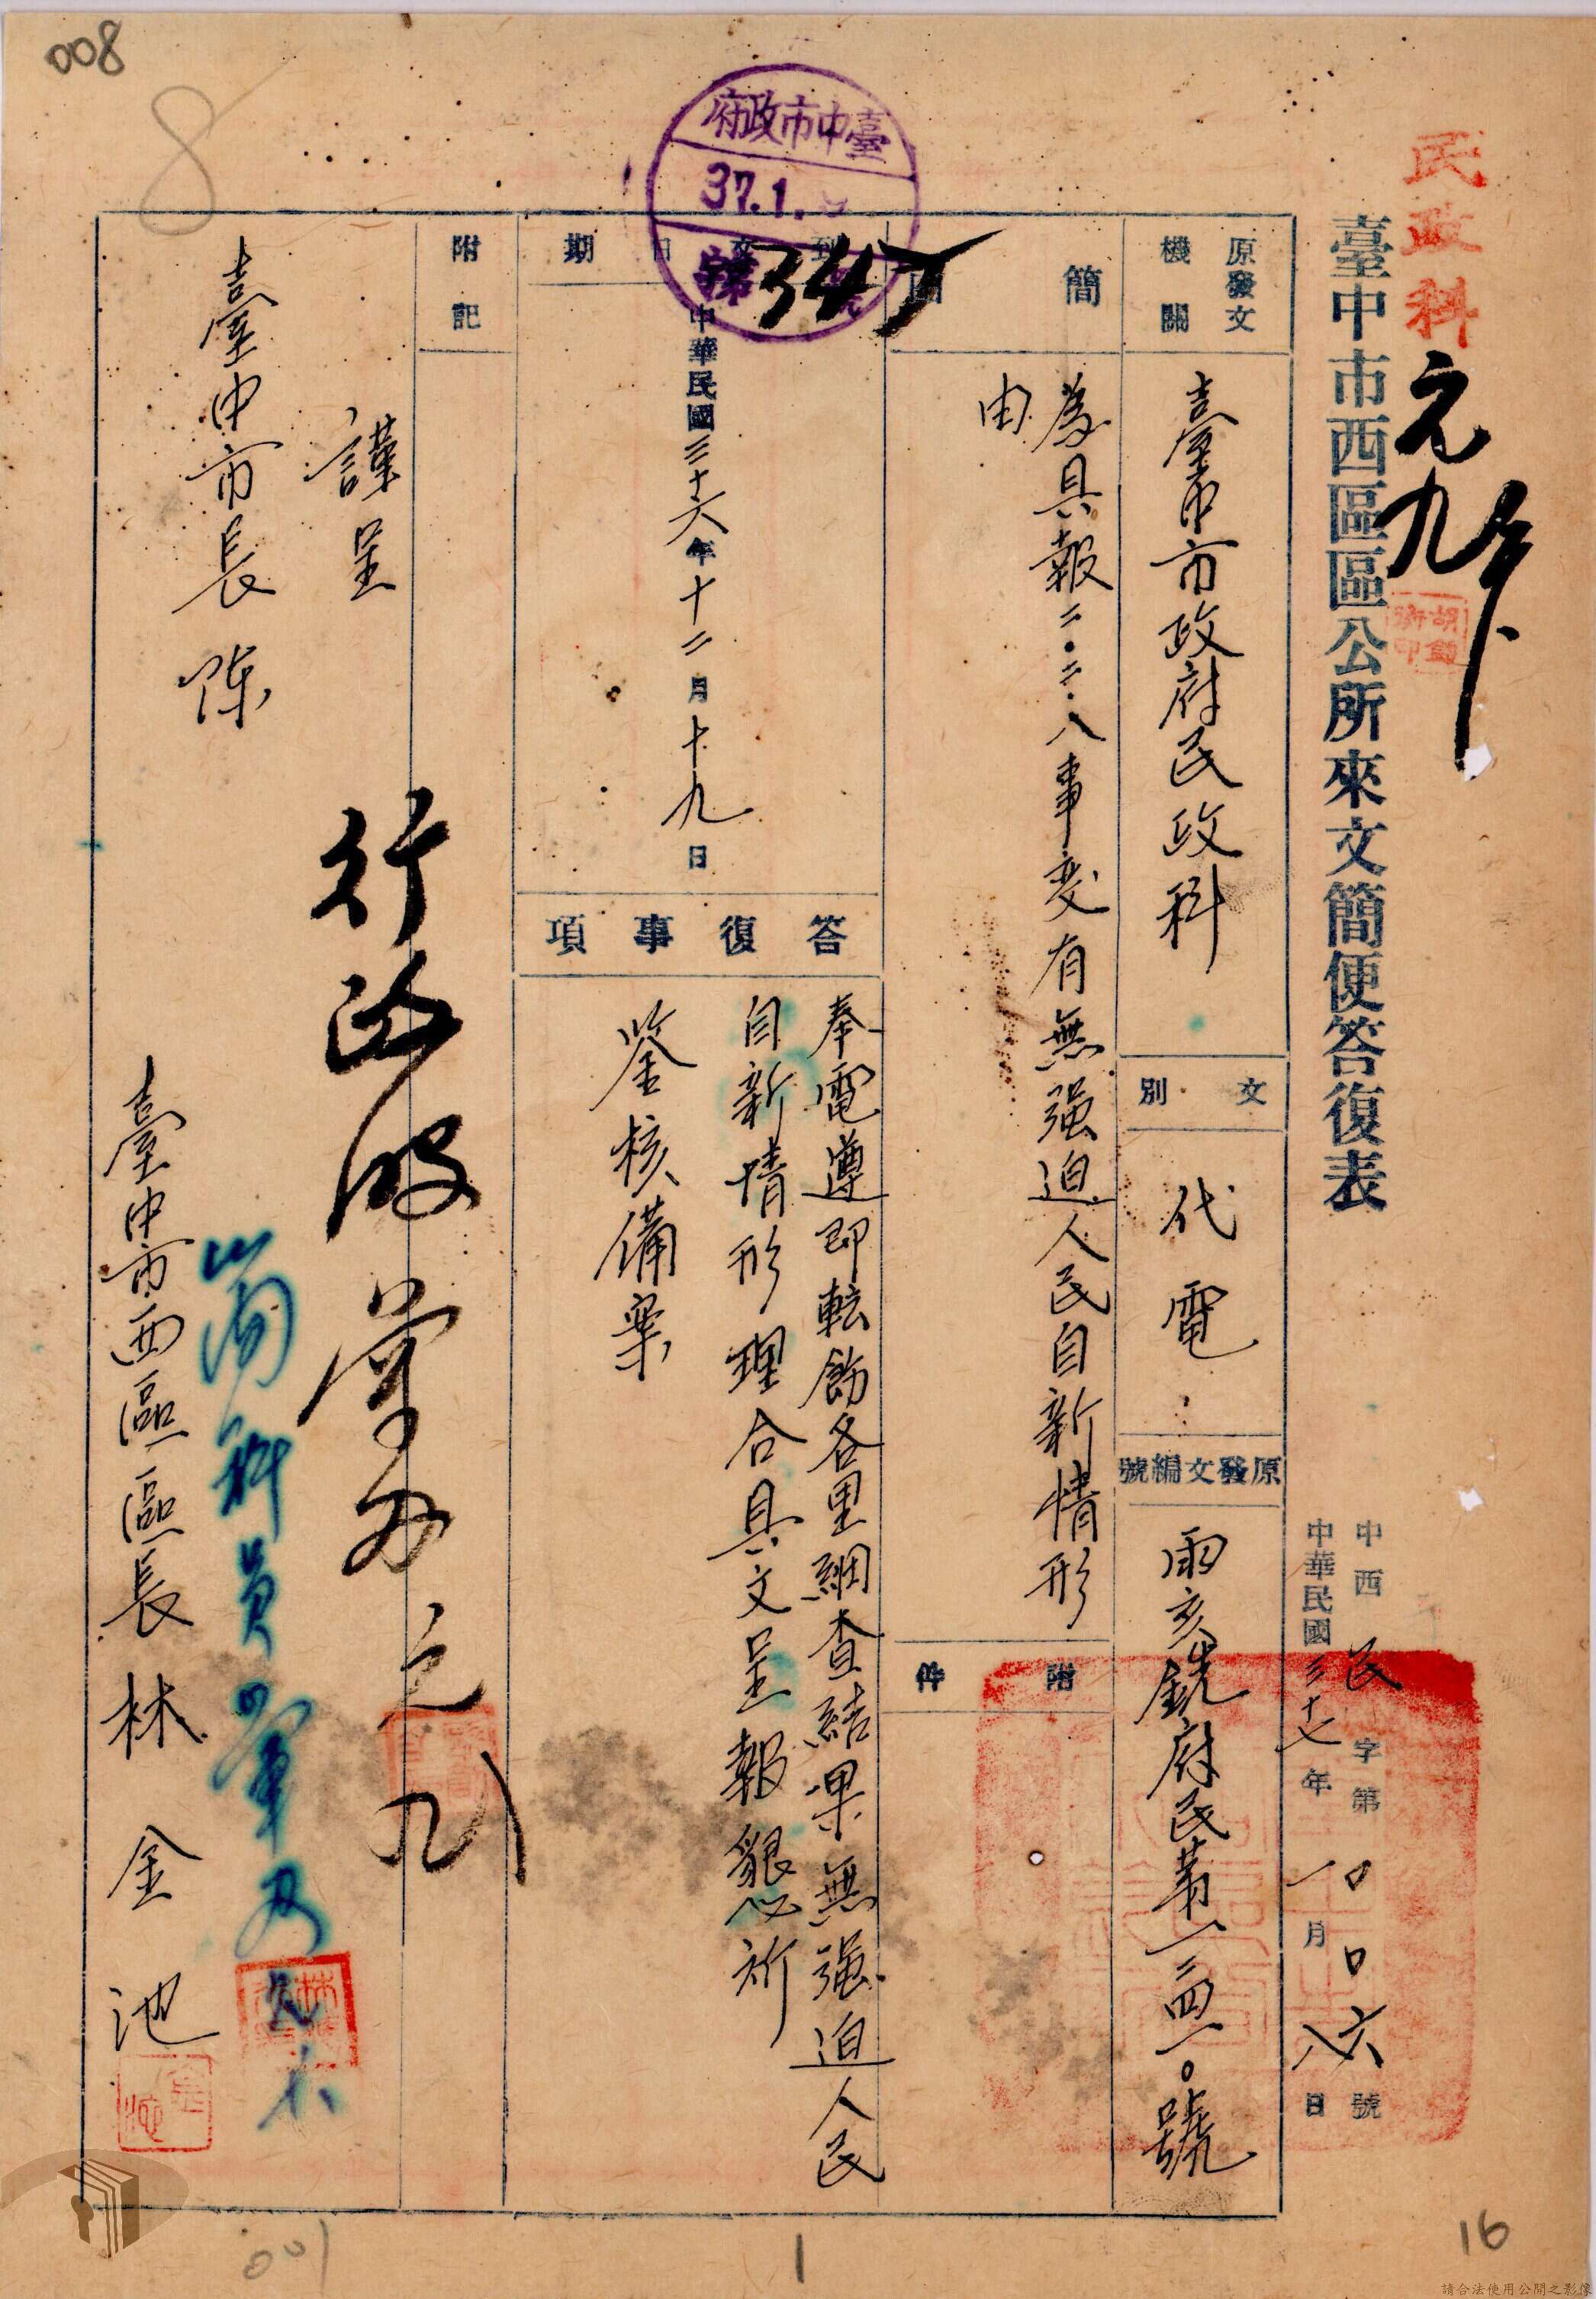 008
8
民政科
元九
臺中市西區區公所來文簡便答復表
中西民字第00六號
中華民國三十七年一月八日
原發文機關
臺中市政府民政科
文別
代電
原發文編號
兩亥銑府民第一三四一0號
簡由
為具報二.二.八事变有無强迫人民自新情形
由
附件
臺中市政府
37.1.9
字第347號
到文日期
中華民國三十六年十二月十九日
答復事項
奉電遵即転飭各里細查結果無强迫人民
自新情形理合具文呈報懇祈
鑒核備案
附記
謹呈
臺中市長陳
行政股
元九
科員
臺中市西區區長林金池
001
1
16
請合法使用公開之影像